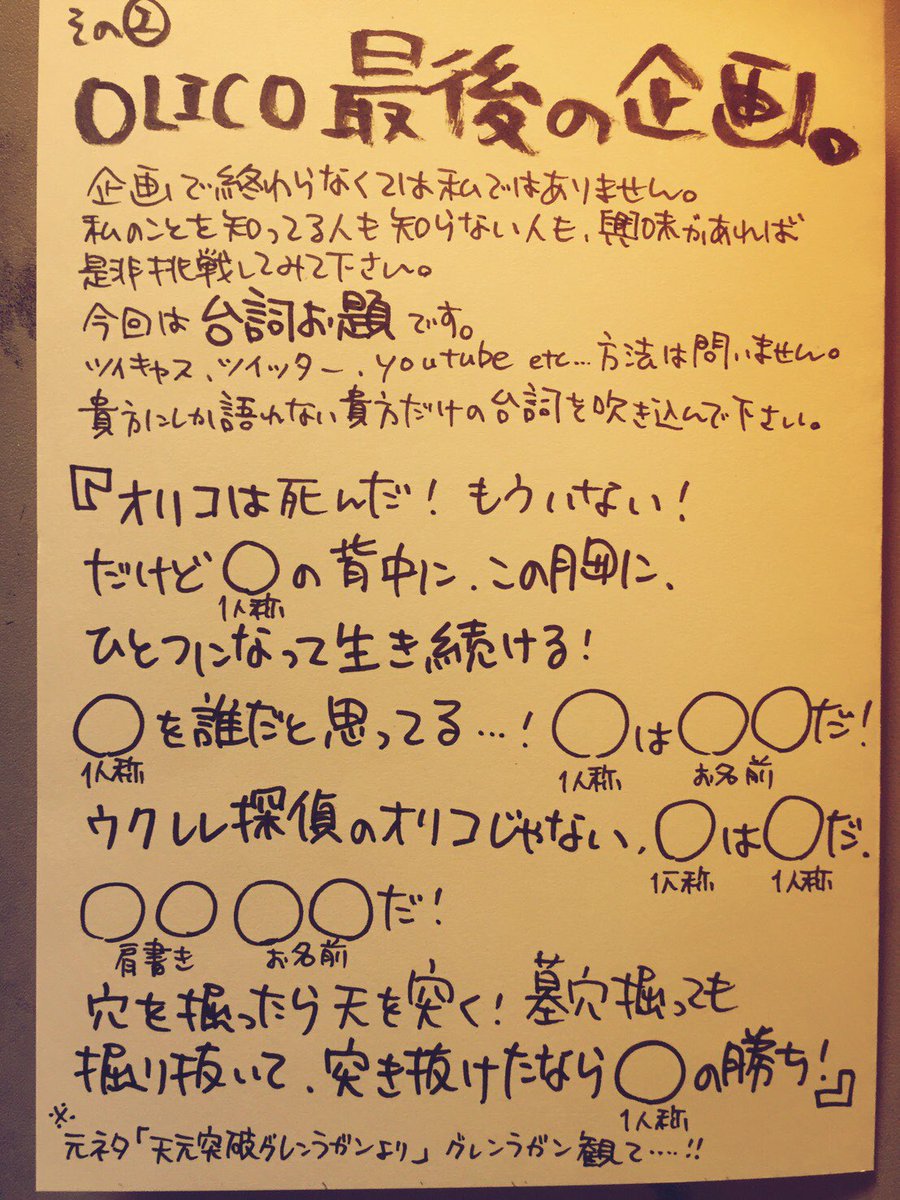 その②
OLICO 最後の企画。
企画で終わらなくては私ではありません。
私のことを知ってる人も知らない人も、興味があれば
是非挑戦してみて下さい。
今回は台詞お題です。
ツイキャス、ツイッター、youtube etc…方法は問いません。
貴方にしか語れない貴方だけの台詞を吹き込んで下さい。
『オリコは死んだ！もういない！
だけど〇の背中に、この胸に、
1人称
ひとつになって生き続ける！
〇を誰だと思ってる…！〇は〇〇だ！
1人称 1人称 お名前
ウクレレ探偵のオリコじゃない、〇は〇だ、
1人称 1人称
〇〇〇〇だ！
肩書き お名前
穴を掘ったら天を突く！墓穴掘っても
掘り抜いて、突き抜けたなら〇の勝ち！』
1人称
※元ネタ「天元突破グレンラガンより」グレンラガン観て….!!